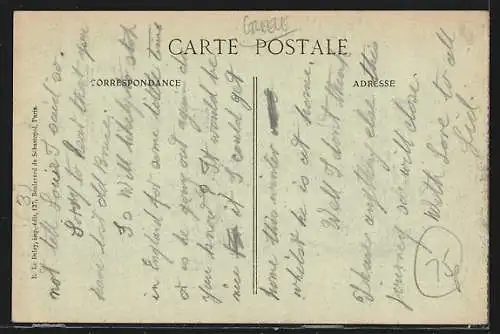 GREECE
CARTE POSTALE
CORRESPONDANCE
ADRESSE
L. Le Deley, imp.-édit., 127, Boulevard de Sébastopol, Paris.
3)
not tell Louie I said so.
Sorry to hear that you
have lost old Bruce,
So Will likely to stop
in England for some little time
or is he going out again do
you know? It would be
nice if I could get
home this winter
whilst he is at home.
Well I don't think
I have anything else this
journey so will close
With Love to all
Sid.